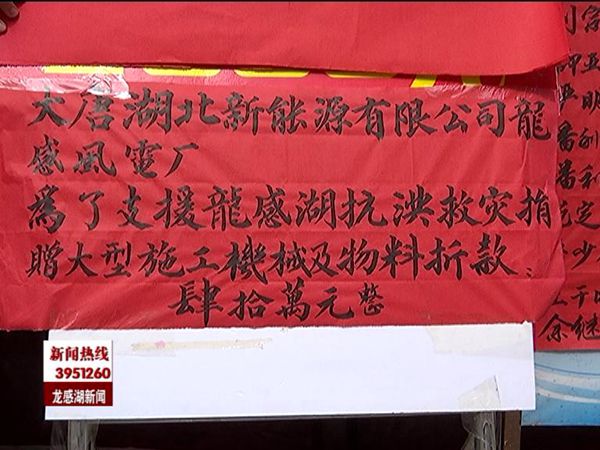 大唐湖北新能源有限公司龍
感風電厂
為了支援龍感湖抗洪救灾捐
贈大型施工機械及物料折款:
肆拾萬元整
余继
新闻热线
3951260
龙感湖新闻